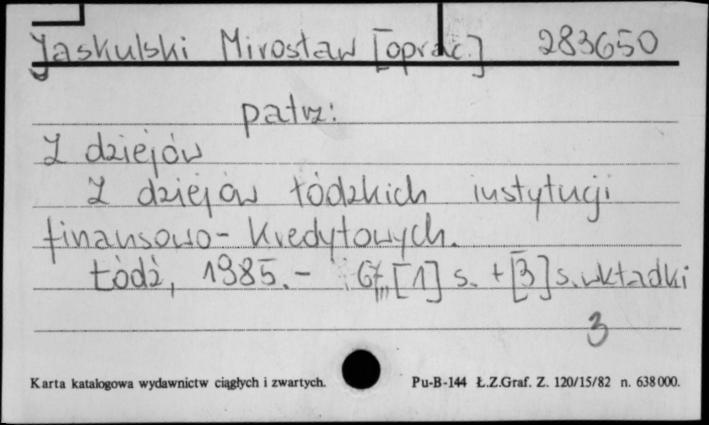 Jaskulski Mirosław [oprac.] 283650
patrz:
Z dziejów
Z dziejów łódzkich instytucji
finansowo-kredytowych.
Łódź, 1985.- 67, [1] s. + [3] s. wkładki
3
Karta katalogowa wydawnictw ciągłych i zwartych. Pu-B-144 Ł.Z.Graf. Z. 120/15/82 n. 638000.